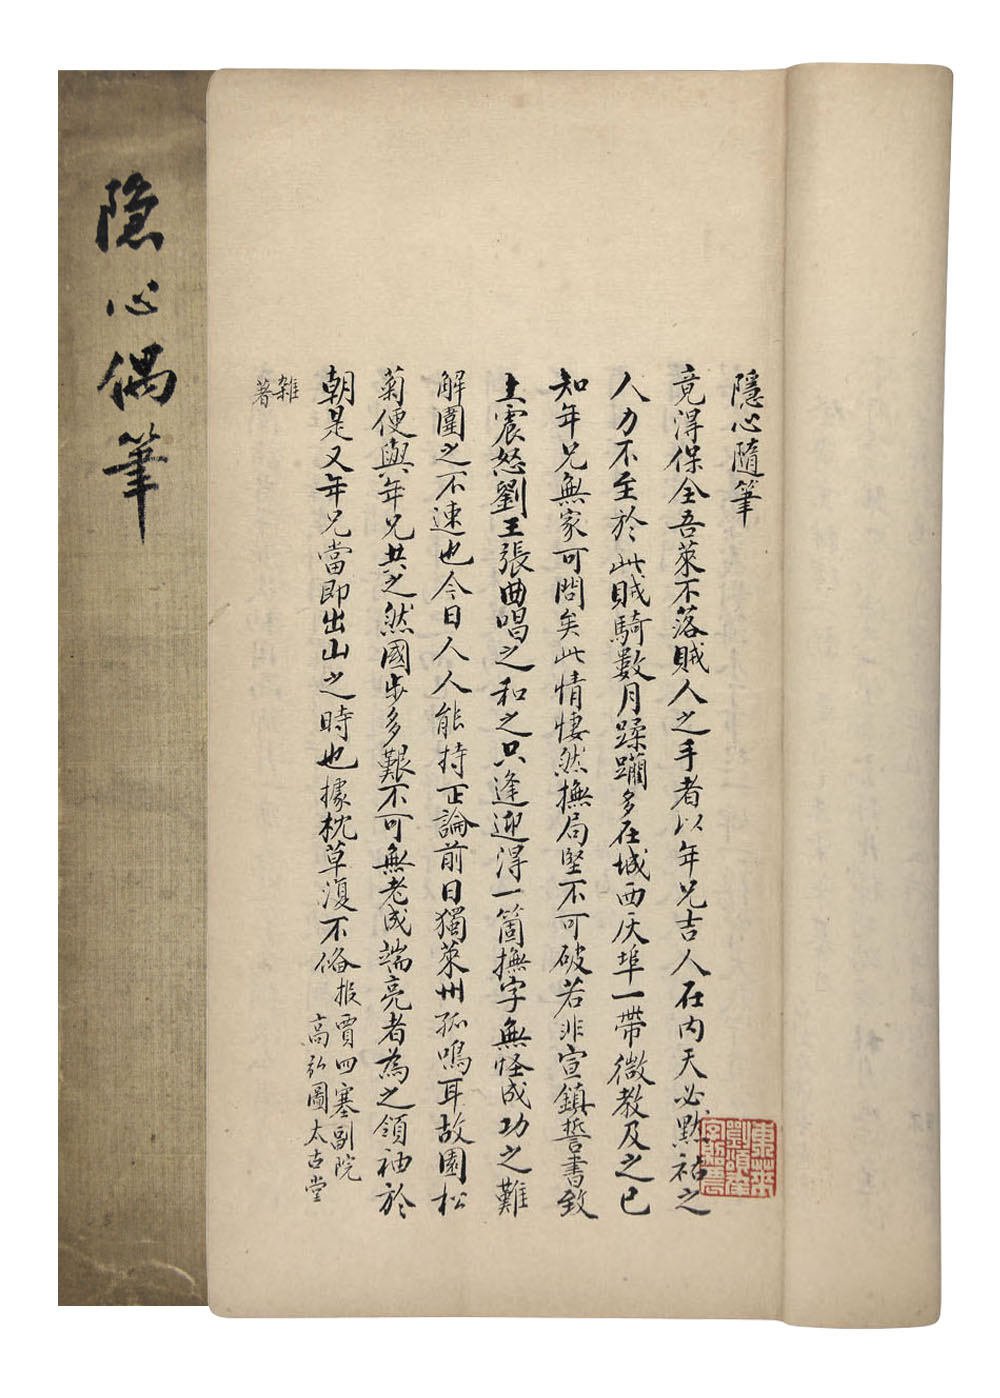 隱心隨筆
竟得保全吾萊不落賊人之手者以年兄吉人在内天必默祐之
人力不至於此賊騎數月蹂躪多在城西灰埠一帶微教及之已
知年兄無家可問矣此情悽然撫局堅不可破若非宣鎮誓書致
上震怒劉王張曲唱之和之只逢迎得一箇撫字無怪成功之難
解圍之不速也今日人人能持正論前日獨萊州孤鳴耳故園松
菊便與年兄共之然國步多艱不可無老成端亮者為之領袖於
朝是又年兄當即出山之時也據枕草復不俻
报賈四塞副院
高弘圖太古堂
雜
著
東萊
隐心偶筆